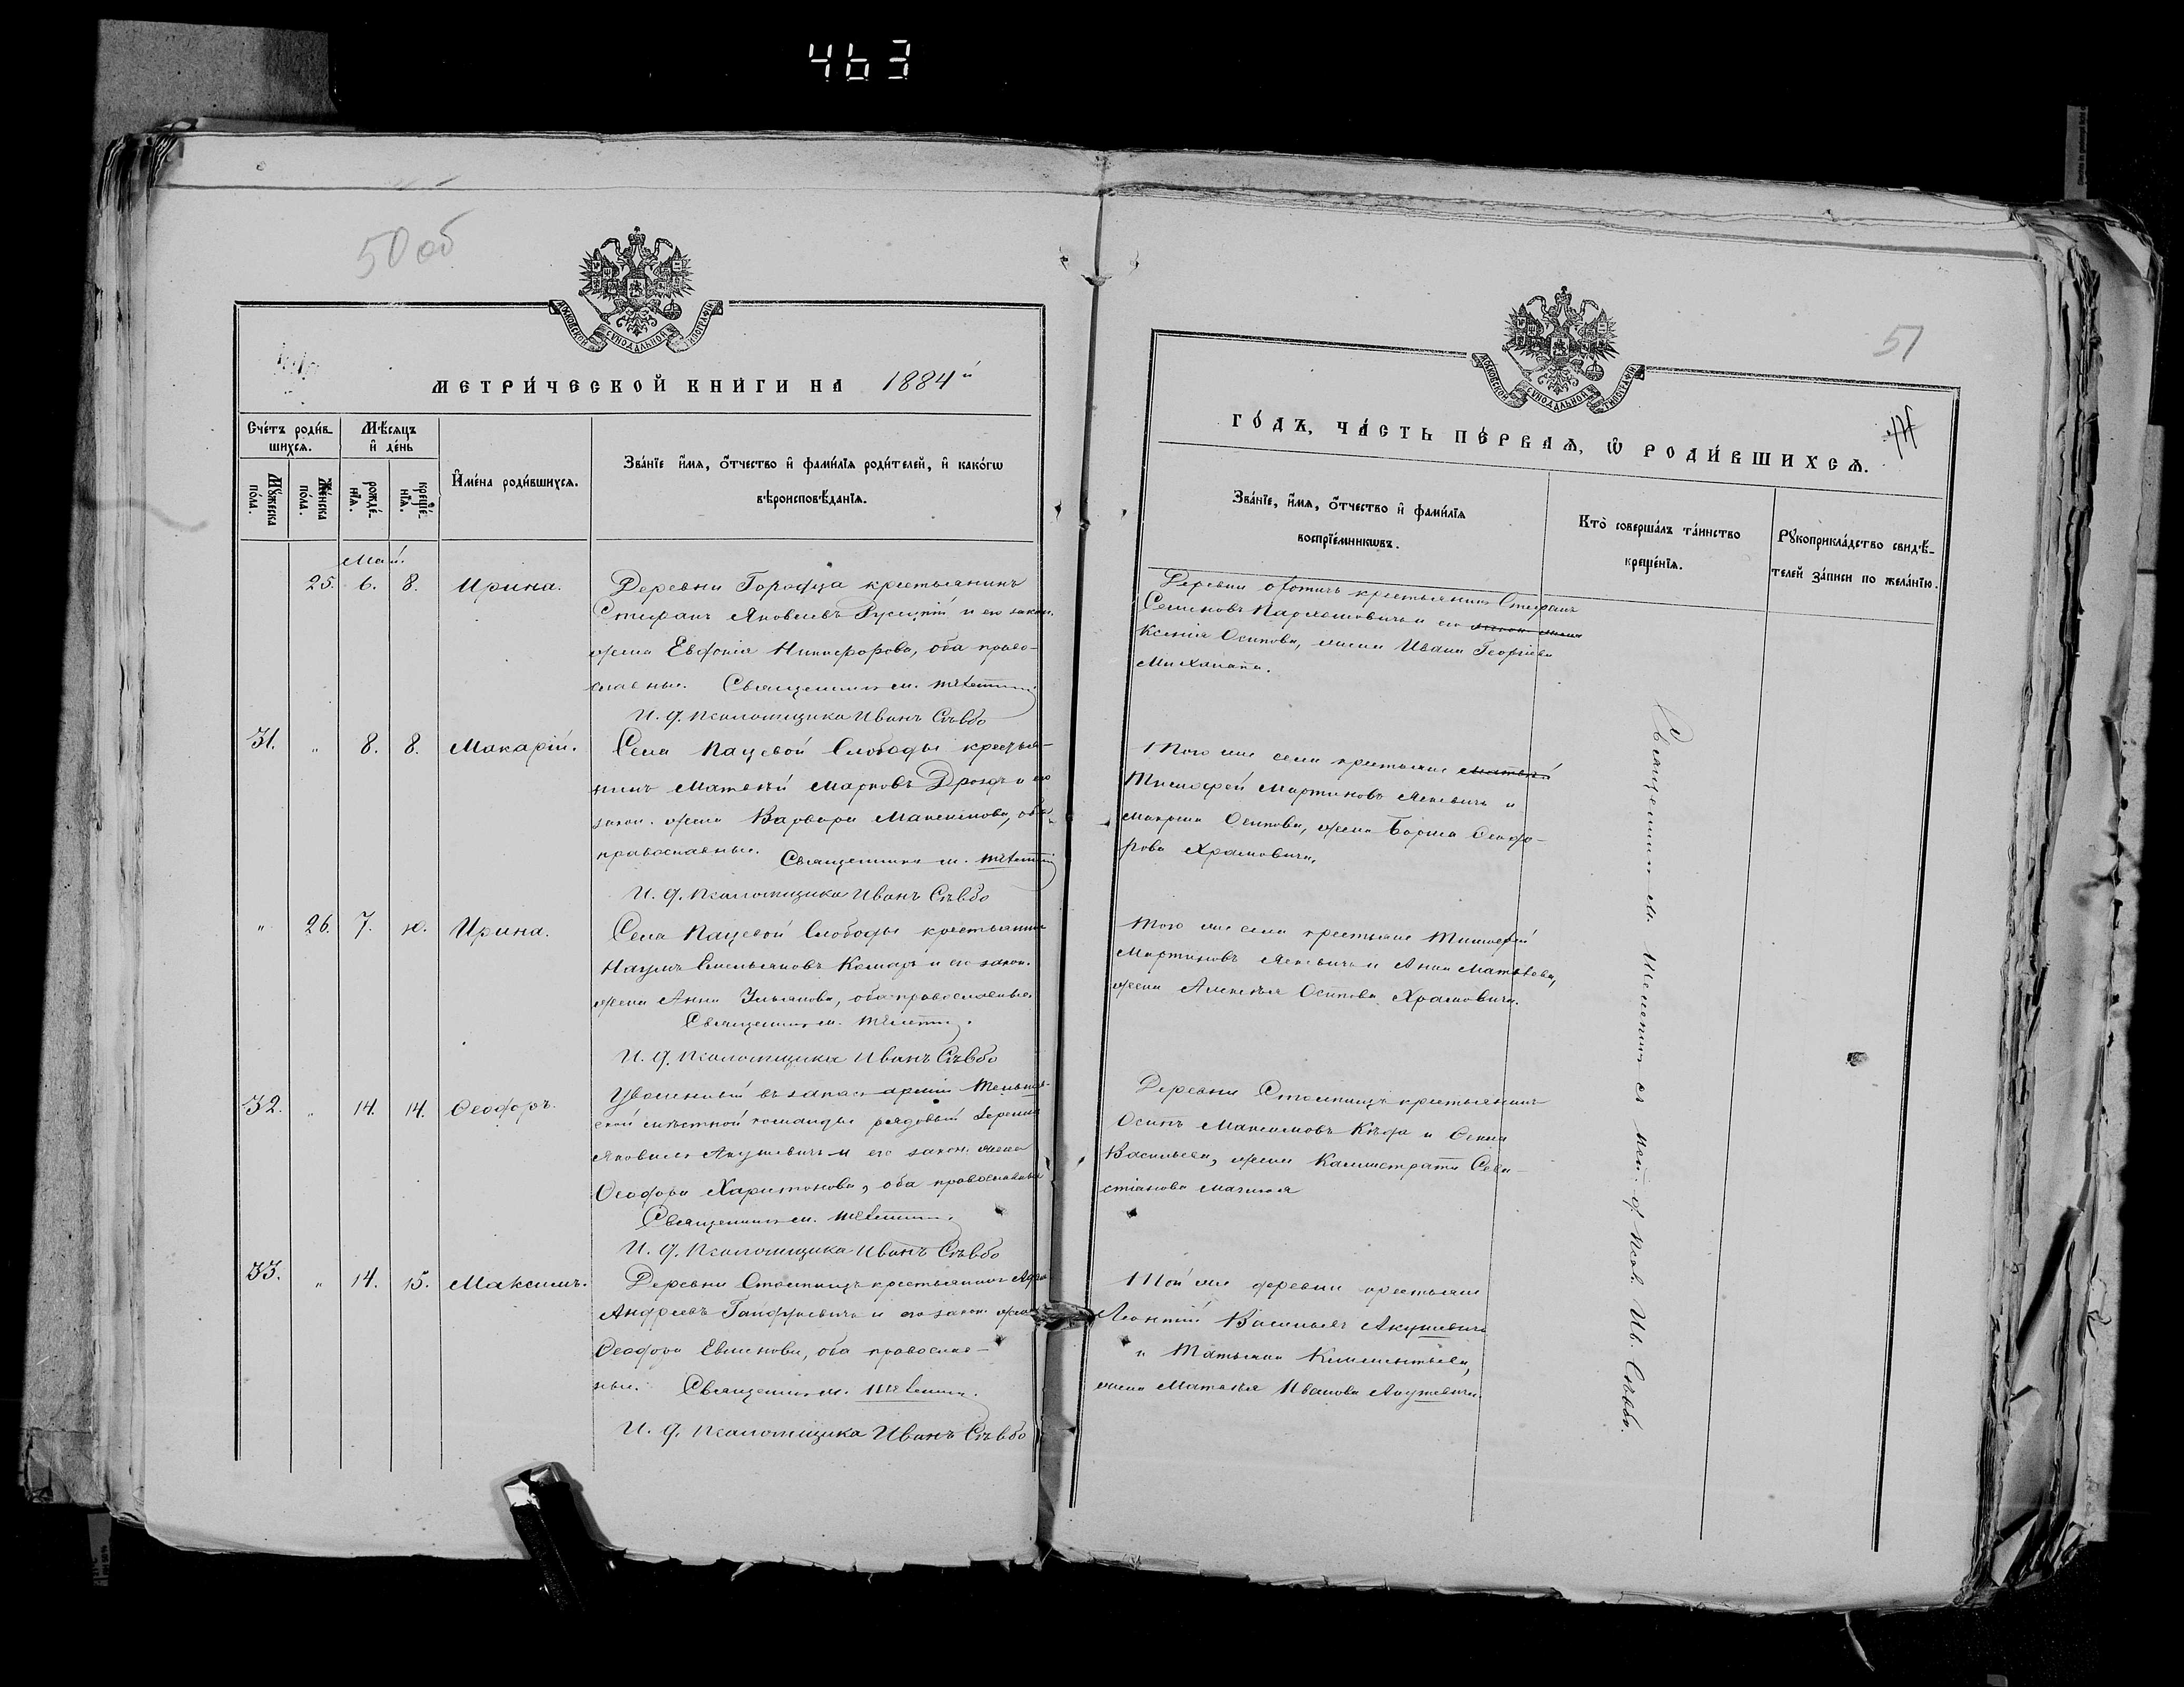 463
50 об
МОСКОВСКОЙ СѴНОДАЛЬНОЙ ТИПОГРАФІИ
МЕТРИ́ЧЕСКОЙ КНИ́ГИ НА 1884й
Сче́тъ роди́в-
шихсѧ.
Мѣ́сѧцъ
и҆ де́нь
И҆мена̀ роди́вшихсѧ.
Зва́нїе и҆́мѧ, ѻ҆́тчество и҆ фами́лїѧ роди́телей, и҆ какѡ́гѡ
вѣроисповѣ́данїѧ.
Мꙋ́жеска
по́ла.
Же́нска
по́ла.
рожде́-
нїѧ.
креще́-
нїѧ.
Май.
25. 6. 8. Ирина. Деревни Городца крестьянинъ
Стефанъ Яковлевъ Русецкій и его закон.
жена Евфонія Никифорова, оба право-
славные. Священникъ М.
И. д. псаломщика Иванъ Слѣвбо
31. " 8. 8. Макарій. Села Пацевой Слободы крестья-
нинъ Матвѣй Марковъ Дроздъ и его
закон. жена Варвара Максимова, оба
православные. Священникъ М.
И. д. псаломщика Иванъ Слѣвбо
" 26. 7. 10. Ирина. Села Пацевой Слободы крестьянинъ
Наумъ Емельяновъ Комаръ и его закон.
жена Анна Ульянова, оба православные.
Священникъ М.
И. д. псаломщика Иванъ Слѣвбо
32. " 14. 14. Ѳеодоръ. Уволенный въ запасъ арміи
мѣстной команды рядовый
Яковлевъ Акушевичъ и его закон. жена
Ѳеодора Харитонова, оба православные
Священникъ М.
И. д. псаломщика Иванъ Слѣвбо
33. " 14. 15. Максимъ. Деревни Столпищъ крестьянинъ
Андреевъ Гайдукевичъ и его закон. жена
Ѳеодора Евминова, оба православ-
ные. Священникъ М.
И. д. псаломщика Иванъ Слѣвбо
51
МОСКОВСКОЙ СѴНОДАЛЬНОЙ ТИПОГРАФІИ
ГО́ДЪ, ЧА́СТЬ ПЕ́РВАѦ, Ѡ҆ РОДИ́ВШИХСѦ.
Зва́нїе, и҆́мѧ, ѻ҆́тчество и҆ фами́лїѧ
воспрїе́мникѡвъ.
Кто̀ соверша́лъ та́инство
креще́нїѧ.
Рꙋкоприкла́дство свидѣ́-
телей за́писи по жела́нїю.
Деревни крестьянинъ Стефанъ
Семеновъ Пархомовичъ и его
Ксенія Осипова, жена Ивана Георгіева
Михалапа.
Того же села крестьяне Матвѣй
Тимофей Мартиновъ Яскевичъ и
Макрина Осипова, жена Бориса Ѳеодо-
рова Храмовича.
Того же села крестьяне Тимофей
Мартиновъ Яскевичъ и Анна Матвѣева,
жена Алексѣя Осипова Храмовича.
Деревни Столпищъ крестьянинъ
Осипъ Максимовъ и
Васильева, жена Каллистрата Сева-
стіанова
Той же деревни крестьяне
Леонтій Васильевъ Акушевичъ
и Татьяна Климентьева,
жена Матвѣя Иванова Акушевича
Священникъ М. съ исп. д. псал. Ив. Слѣвбо.